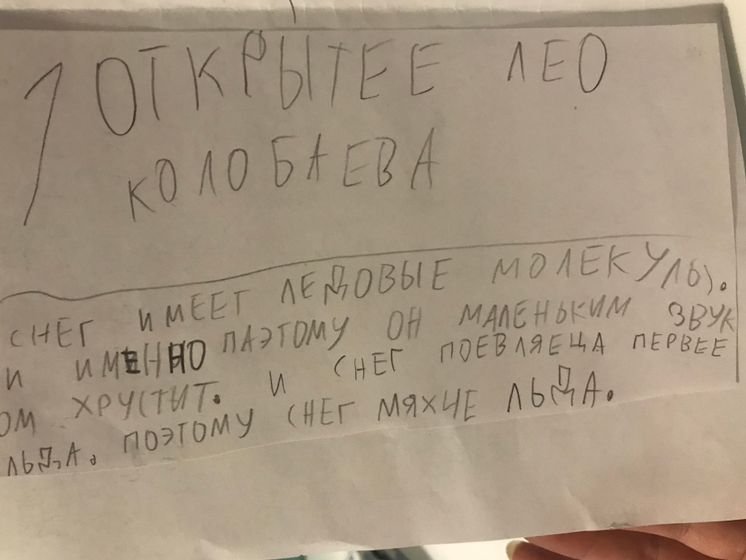 1 ОТКРЫТЕЕ ЛЕО
КОЛОБАЕВА
СНЕГ ИМЕЕТ ЛЕДОВЫЕ МОЛЕКУЛЫ.
И ИМЕННО ПАЭТОМУ ОН МАЛЕНЬКИМ ЗВУК
ОМ ХРУСТИТ. И СНЕГ ПОЕВЛЯЕЦА ПЕРВЕЕ
ЛЬДА. ПОЭТОМУ СНЕГ МЯХЧЕ ЛЬДА.